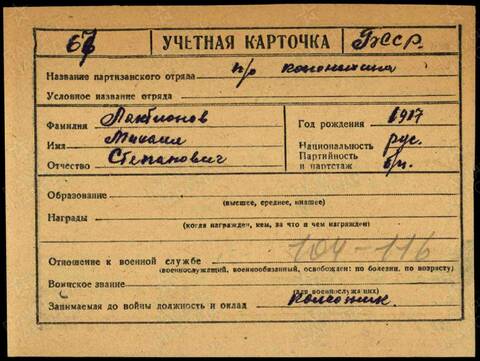 67 УЧЕТНАЯ КАРТОЧКА БССР.
Название партизанского отряда п/о
Условное название отряда
Фамилия Лактионов
Имя Михаил
Отчество Степанович
Год рождения 1917
Национальность рус.
Партийность и партстаж б/п.
Образование
(высшее, среднее, низшее)
Награды
(когда награжден, кем, за что и чем награжден)
104-116
Отношение к военной службе
(военнослужащий, военнообязанный, освобожден: по болезни, по возрасту)
Воинское звание
(для военнослужащих)
Занимаемая до войны должность и оклад колхозник.